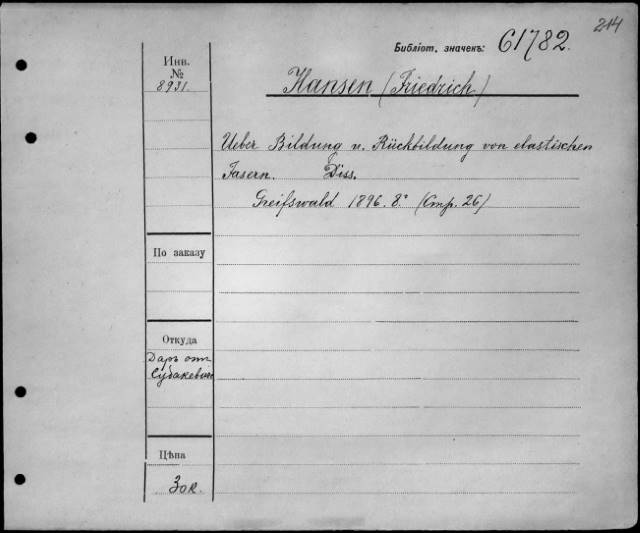 214
Библіот. значекъ: 61782.
Инв.
№
8931.
Hansen (Friedrich)
Ueber Bildung u. Rückbildung von elastischen
Fasern. Diss.
Greifswald 1896. 8.° (Стр. 26)
По заказу
Откуда
Даръ отъ
Судакевича
Цѣна
30к.